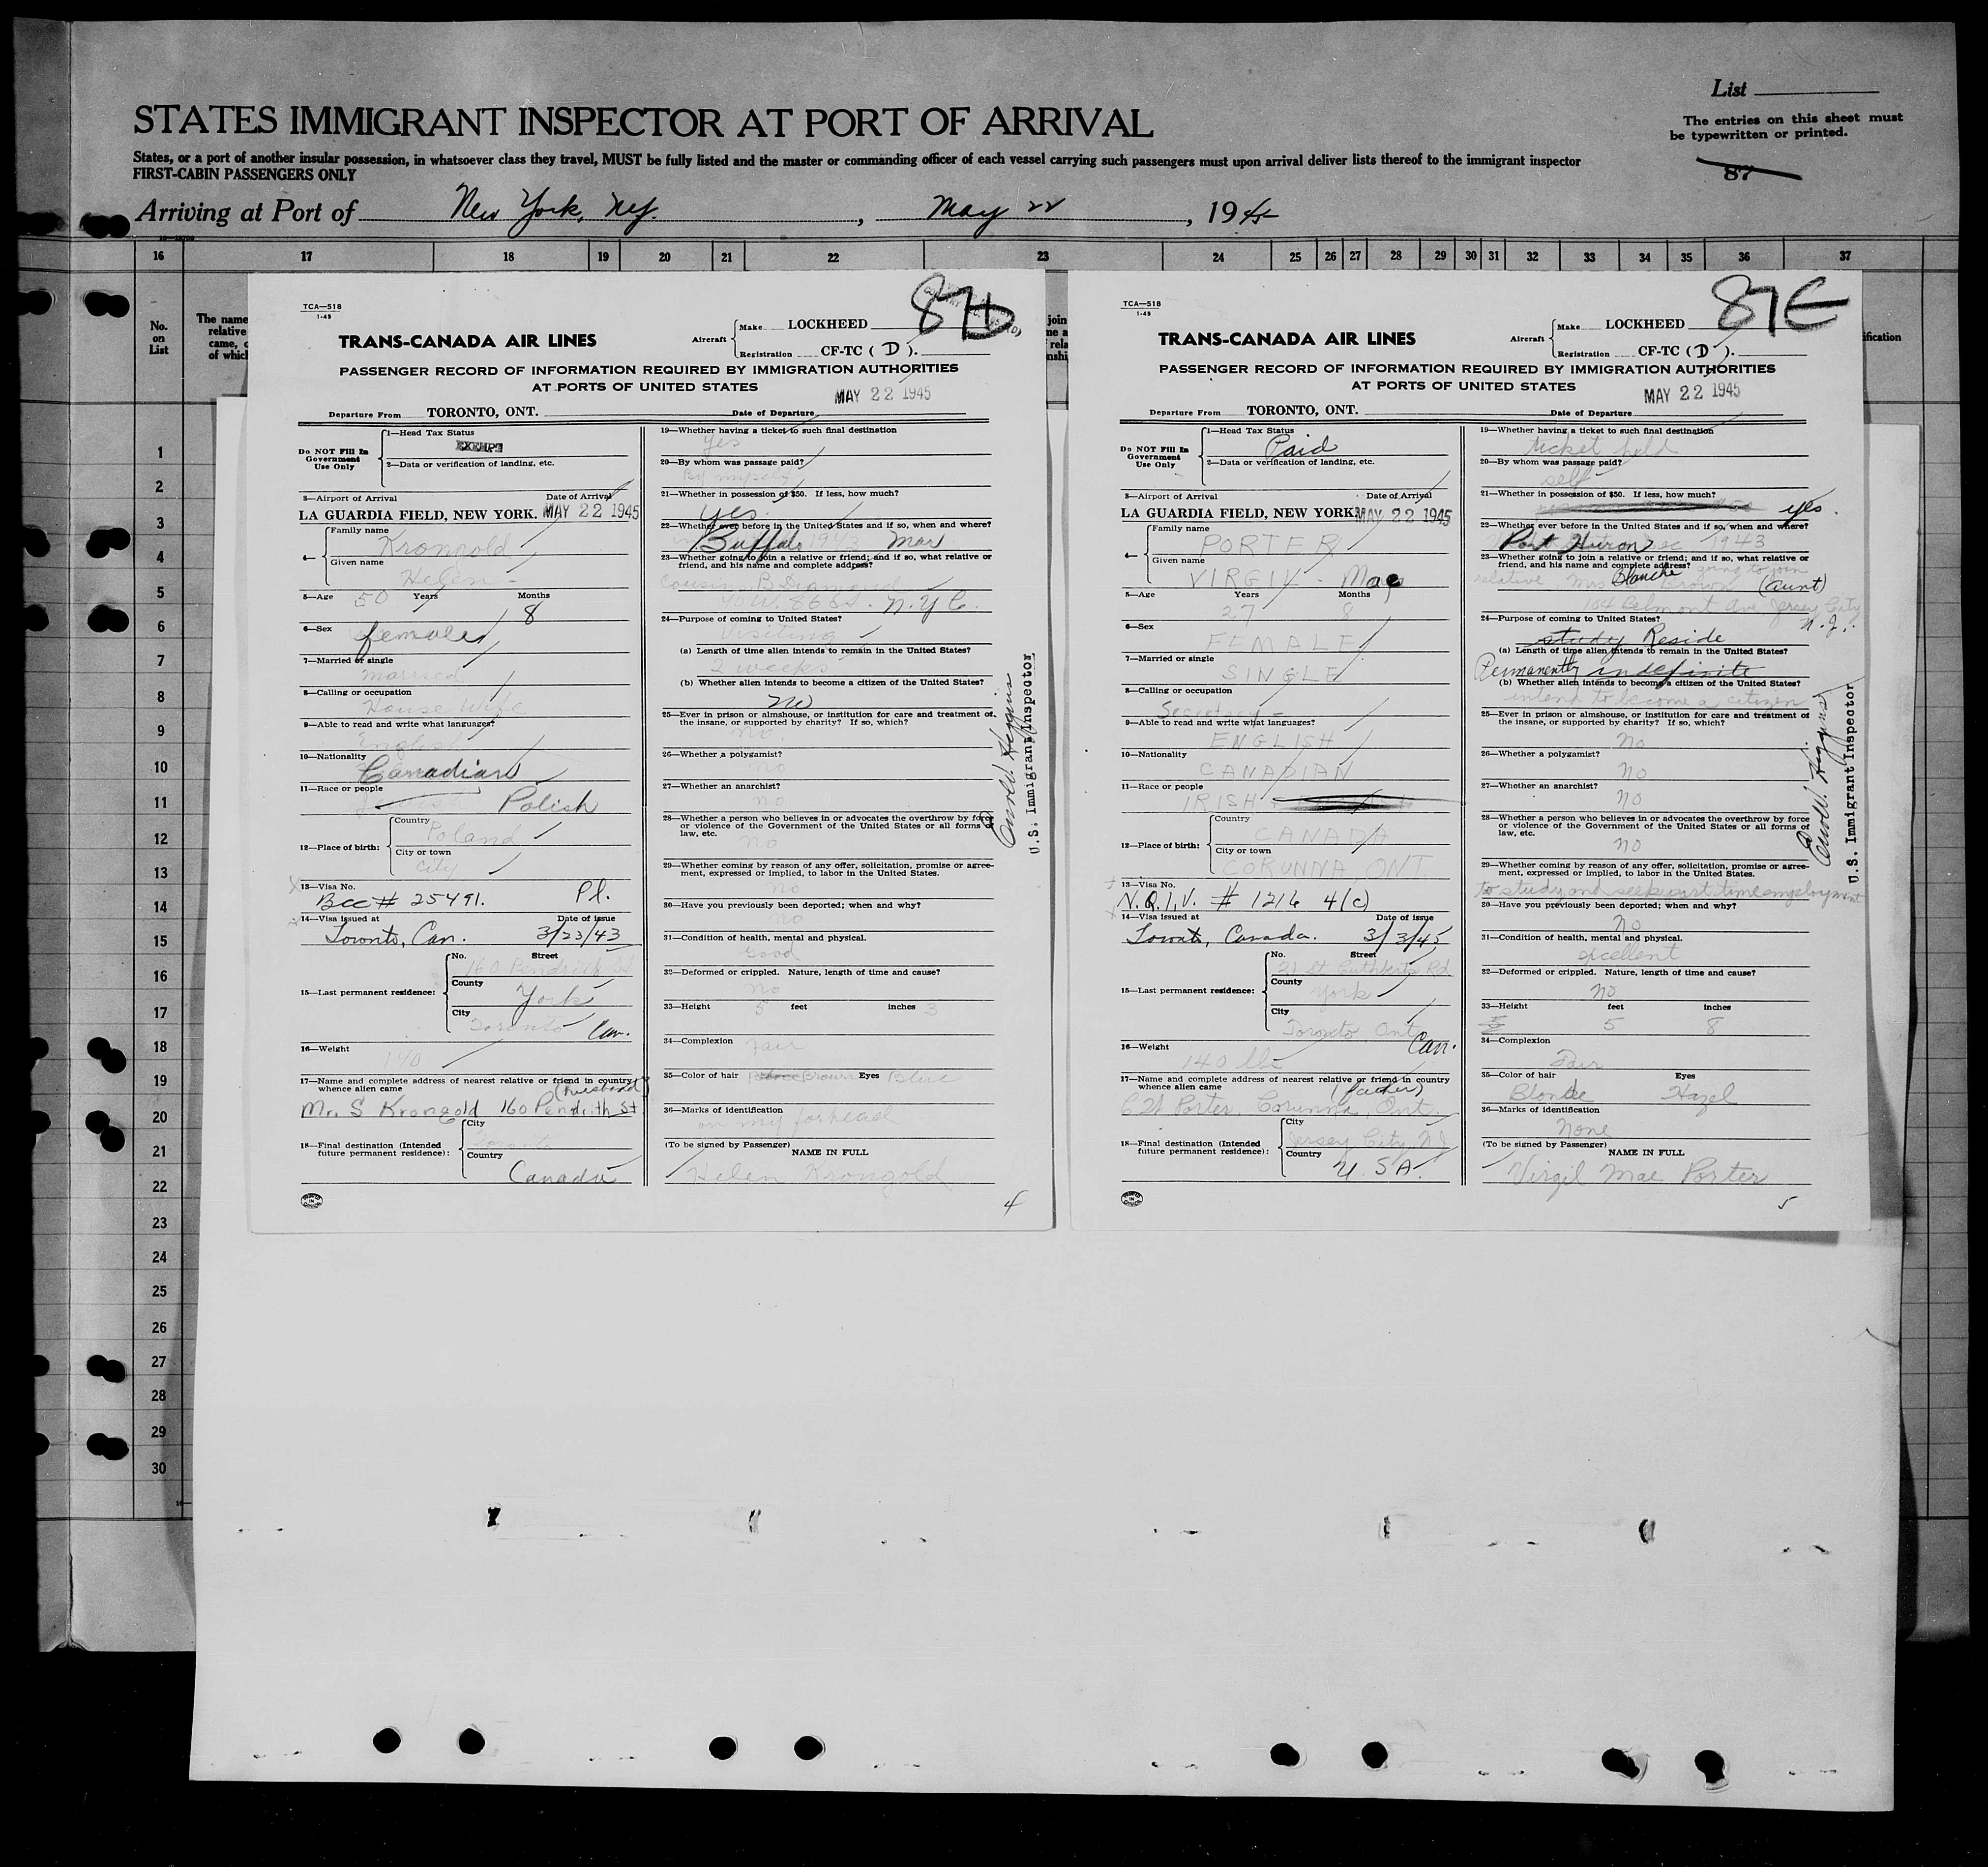 List
STATES IMMIGRANT INSPECTOR AT PORT OF ARRIVAL
The entries on this sheet must
be typewritten or printed.
States, or a port of another insular possession, in whatsoever class they travel, MUST be fully listed and the master or commanding officer of each vessel carrying such passengers must upon arrival deliver lists thereof to the immigrant inspector
FIRST-CABIN PASSENGERS ONLY
87
Arriving at Port of New York, NY. , May 22 , 1945
16 17 18 19 20 21 22 23 24 25 26 27 28 29 30 31 32 33 34 35 36 37
No. on List
The name
relative
came, o
of which
1
2
3
4
5
6
7
8
9
10
11
12
13
14
15
16
17
18
19
20
21
22
23
24
25
26
27
28
29
30
TCA—518
1-45
87D
TRANS-CANADA AIR LINES
Aircraft Make LOCKHEED
Registration CF-TC ( D ).
PASSENGER RECORD OF INFORMATION REQUIRED BY IMMIGRATION AUTHORITIES
AT PORTS OF UNITED STATES
MAY 22 1945
Departure From TORONTO, ONT. Date of Departure
Do NOT Fill In Government Use Only
1—Head Tax Status
EXEMPT
2—Data or verification of landing, etc.
3—Airport of Arrival Date of Arrival
LA GUARDIA FIELD, NEW YORK. MAY 22 1945
4— Family name
Krongold
Given name
Helen -
5—Age 50 Years Months 8
6—Sex
female
7—Married or single
married
8—Calling or occupation
House Wife
9—Able to read and write what languages?
Engl
10—Nationality
Canadian
11—Race or people
Polish
12—Place of birth: Country
Poland
City or town
City
13—Visa No.
Bcc # 25491. Pl.
14—Visa issued at Date of issue
Toronto, Can. 3/23/43
15—Last permanent residence: No. Street
160 Pendrith St
County
York
City
Toronto Can.
16—Weight
140
17—Name and complete address of nearest relative or friend in country
whence alien came (husband)
Mr. S Krongold 160 Pendrith St
18—Final destination (Intended
future permanent residence): City
Toronto
Country
Canada
19—Whether having a ticket to such final destination
Yes
20—By whom was passage paid?
By myself
21—Whether in possession of $50. If less, how much?
yes.
22—Whether ever before in the United States and if so, when and where?
Buffalo 1943 Mar
23—Whether going to join a relative or friend; and if so, what relative or
friend, and his name and complete address?
Cousin B Diamond
40 W. 86 St. N.Y.C.
24—Purpose of coming to United States?
Visiting
(a) Length of time alien intends to remain in the United States?
2 weeks
(b) Whether alien intends to become a citizen of the United States?
no
25—Ever in prison or almshouse, or institution for care and treatment of
the insane, or supported by charity? If so, which?
no.
26—Whether a polygamist?
no
27—Whether an anarchist?
no
28—Whether a person who believes in or advocates the overthrow by force
or violence of the Government of the United States or all forms of
law, etc.
no
29—Whether coming by reason of any offer, solicitation, promise or agree-
ment, expressed or implied, to labor in the United States.
no
30—Have you previously been deported; when and why?
no
31—Condition of health, mental and physical.
Good
32—Deformed or crippled. Nature, length of time and cause?
no
33—Height 5 feet inches 3
34—Complexion Fair
35—Color of hair Brown Eyes Blue
36—Marks of identification
on my forhead
(To be signed by Passenger)
NAME IN FULL
Helen Krongold
4
U.S. Immigrant Inspector
TCA—518
1-45
87E
TRANS-CANADA AIR LINES
Aircraft Make LOCKHEED
Registration CF-TC ( D ).
PASSENGER RECORD OF INFORMATION REQUIRED BY IMMIGRATION AUTHORITIES
AT PORTS OF UNITED STATES
MAY 22 1945
Departure From TORONTO, ONT. Date of Departure
Do NOT Fill In Government Use Only
1—Head Tax Status
Paid
2—Data or verification of landing, etc.
3—Airport of Arrival Date of Arrival
LA GUARDIA FIELD, NEW YORK. MAY 22 1945
4— Family name
PORTER
Given name
VIRGIL - Mae
5—Age 27 Years Months 8
6—Sex
FEMALE
7—Married or single
SINGLE
8—Calling or occupation
Secretary -
9—Able to read and write what languages?
ENGLISH
10—Nationality
CANADIAN
11—Race or people
IRISH
12—Place of birth: Country
CANADA
City or town
CORUNNA ONT
13—Visa No.
N.Q.I.V. # 1216 4(c)
14—Visa issued at Date of issue
Toronto, Canada. 3/3/45
15—Last permanent residence: No. Street
21 St Cuthberts Rd
County
York
City
Toronto Ont
Can.
16—Weight
140 lbs
17—Name and complete address of nearest relative or friend in country
whence alien came (father)
Porter Corunna, Ont.
18—Final destination (Intended
future permanent residence): City
Jersey City, N.J
Country
U.S.A.
19—Whether having a ticket to such final destination
ticket held
20—By whom was passage paid?
self
21—Whether in possession of $50. If less, how much?
yes.
22—Whether ever before in the United States and if so, when and where?
Port Huron 1943
23—Whether going to join a relative or friend; and if so, what relative or
friend, and his name and complete address? going to join
relative Mrs Blanche Brown (aunt)
104 Belmont Ave Jersey City
N.J.
24—Purpose of coming to United States?
study Reside
(a) Length of time alien intends to remain in the United States?
Permanently indefinite
(b) Whether alien intends to become a citizen of the United States?
intend to become a citizen
25—Ever in prison or almshouse, or institution for care and treatment of
the insane, or supported by charity? If so, which?
no
26—Whether a polygamist?
no
27—Whether an anarchist?
no
28—Whether a person who believes in or advocates the overthrow by force
or violence of the Government of the United States or all forms of
law, etc.
no
29—Whether coming by reason of any offer, solicitation, promise or agree-
ment, expressed or implied, to labor in the United States.
to study and seek part time employment
30—Have you previously been deported; when and why?
No
31—Condition of health, mental and physical.
excellent
32—Deformed or crippled. Nature, length of time and cause?
no
33—Height feet inches
5 8
34—Complexion
Fair
35—Color of hair Eyes
Blonde Hazel
36—Marks of identification
None
(To be signed by Passenger)
NAME IN FULL
Virgil Mae Porter
5
U.S. Immigrant Inspector